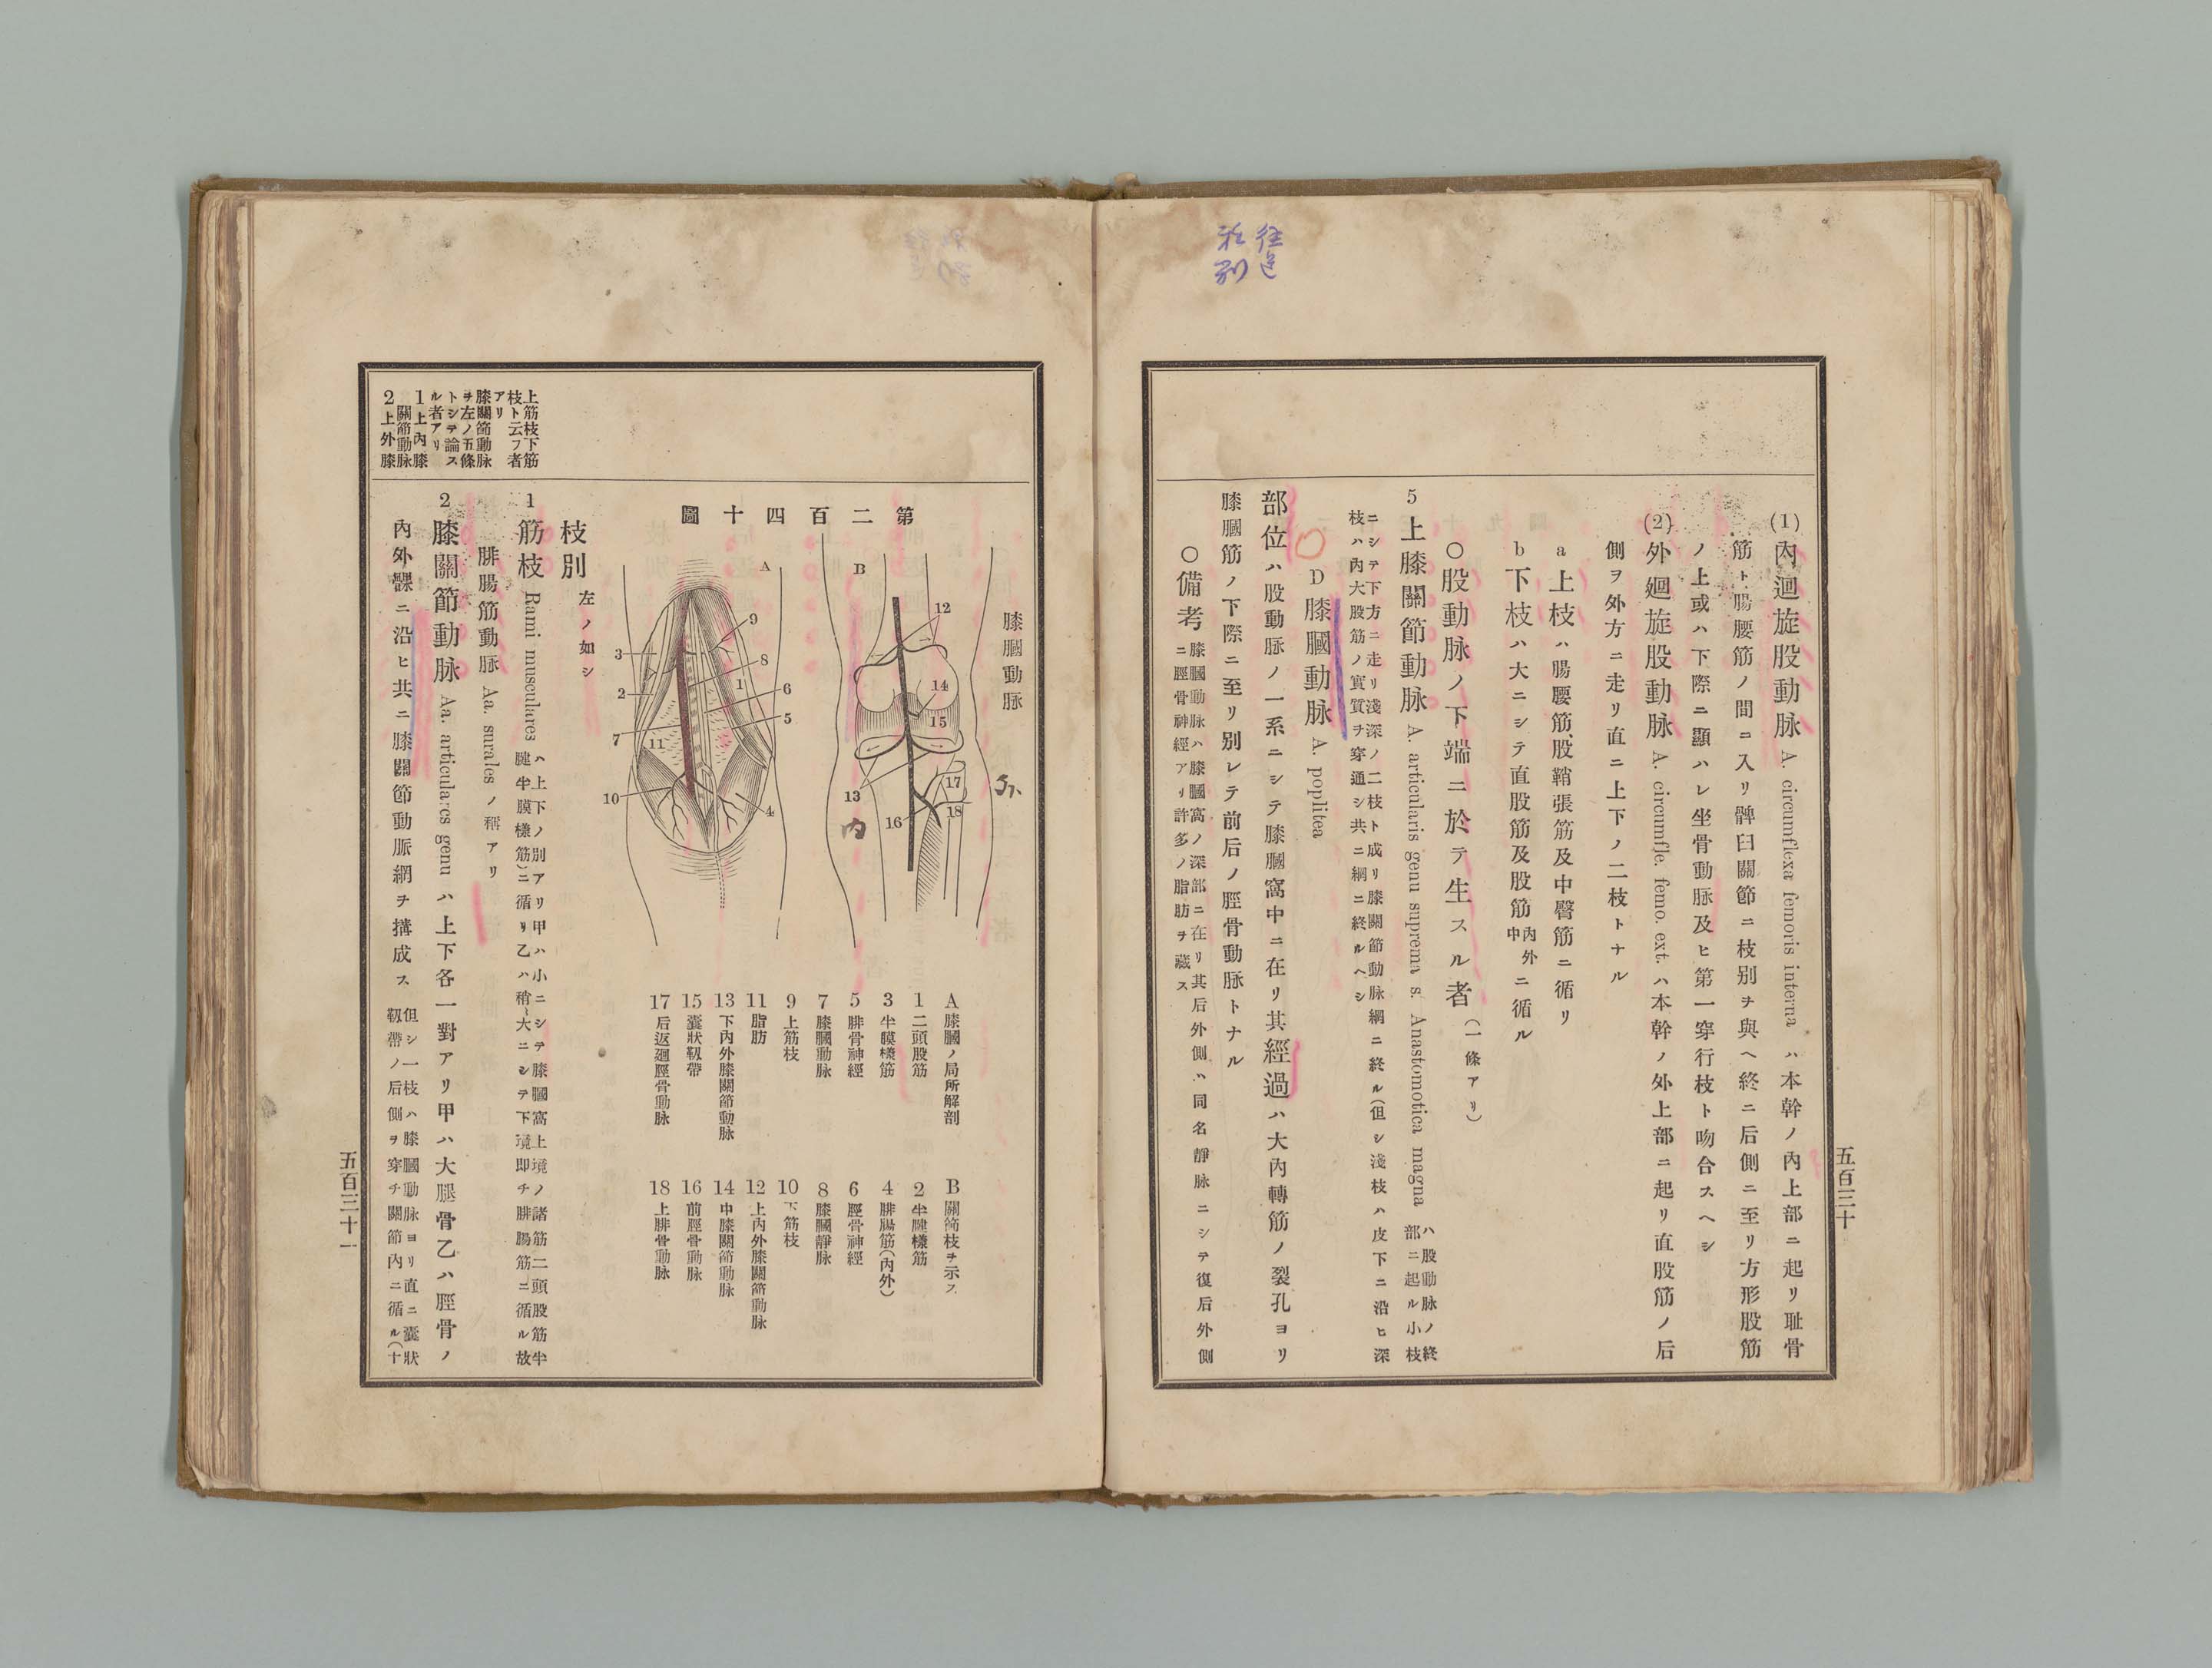 (1) 內廻旋股動脉 A. circumflexa femoris interna ハ本幹ノ內上部ニ起リ耻骨
筋ト腸腰筋ノ間ニ入リ髀臼關節ニ枝別ヲ與ヘ終ニ后側ニ至リ方形股筋
ノ上或ハ下際ニ顯ハレ坐骨動脉及ヒ第一穿行枝ト吻合スヘシ
(2) 外廻旋股動脉 A. circumfle. femo. ext. ハ本幹ノ外上部ニ起リ直股筋ノ后
側ヲ外方ニ走リ直ニ上下ノ二枝トナル
a 上枝ハ腸腰筋、股鞘張筋及中臀筋ニ循リ
b 下枝ハ大ニシテ直股筋及股筋內外中ニ循ル
○股動脉ノ下端ニ於テ生スル者(一條アリ)
5 上膝關節動脉 A. articularis genu suprema s. Anastomotica magna ハ股動脉ノ終部ニ起ル小枝
ニシテ下方ニ走リ淺深ノ二枝ト成リ膝關節動脉網ニ終ル(但シ淺枝ハ皮下ニ沿ヒ深
枝ハ內大股筋ノ實質ヲ穿通シ共ニ網ニ終ルヘシ
D 膝膕動脉 A. poplitea
部位ハ股動脉ノ一系ニシテ膝膕窩中ニ在リ其經過ハ大內轉筋ノ裂孔ヨリ
膝膕筋ノ下際ニ至リ別レテ前后ノ脛骨動脉トナル
○備考 膝膕動脉ハ膝膕窩ノ深部ニ在リ其后外側ハ同名靜脉ニシテ復后外側
ニ脛骨神經アリ許多ノ脂肪ヲ藏ス
五百三十
膝膕動脉
第二百四十圖
A
B
1
2
3
4
5
6
7
8
9
10
11
12
13
14
15
16
17
18
外
內
A 膝膕ノ局所解剖
B 關節枝ヲ示ス
1 二頭股筋
2 半腱樣筋
3 半膜樣筋
4 腓腸筋(內外)
5 腓骨神經
6 脛骨神經
7 膝膕動脉
8 膝膕靜脉
9 上筋枝
10 下筋枝
11 脂肪
12 上內外膝關節動脉
13 下內外膝關節動脉
14 中膝關節動脉
15 囊狀靱帶
16 前脛骨動脉
17 后返廻脛骨動脉
18 上腓骨動脉
枝別 左ノ如シ
1 筋枝 Rami musculares ハ上下ノ別アリ甲ハ小ニシテ膝膕窩上境ノ諸筋二頭股筋半
腱半膜樣筋)ニ循リ乙ハ稍〻大ニシテ下境即チ腓腸筋ニ循ル故
腓腸筋動脉 Aa. surales ノ稱アリ
2 膝關節動脉 Aa. articulares genu ハ上下各一對アリ甲ハ大腿骨乙ハ脛骨ノ
內外髁ニ沿ヒ共ニ膝關節動脈網ヲ搆成ス 但シ一枝ハ膝膕動脉ヨリ直ニ囊狀
靱帶ノ后側ヲ穿チ關節內ニ循ル(十
上筋枝下筋
枝ト云フ者
アリ
膝關節動脉
ヲ左ノ五條
トシテ論ス
ル者アリ
1 上內膝
關節動脉
2 上外膝
五百三十一